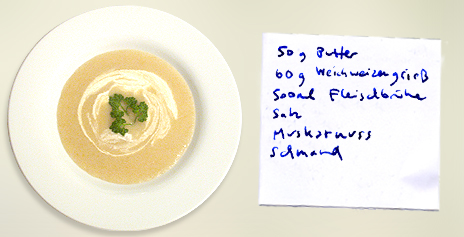 50g Butter
60g Weichweizengrieß
500ml Fleischbrühe
Salz
Muskatnuss
Schmand